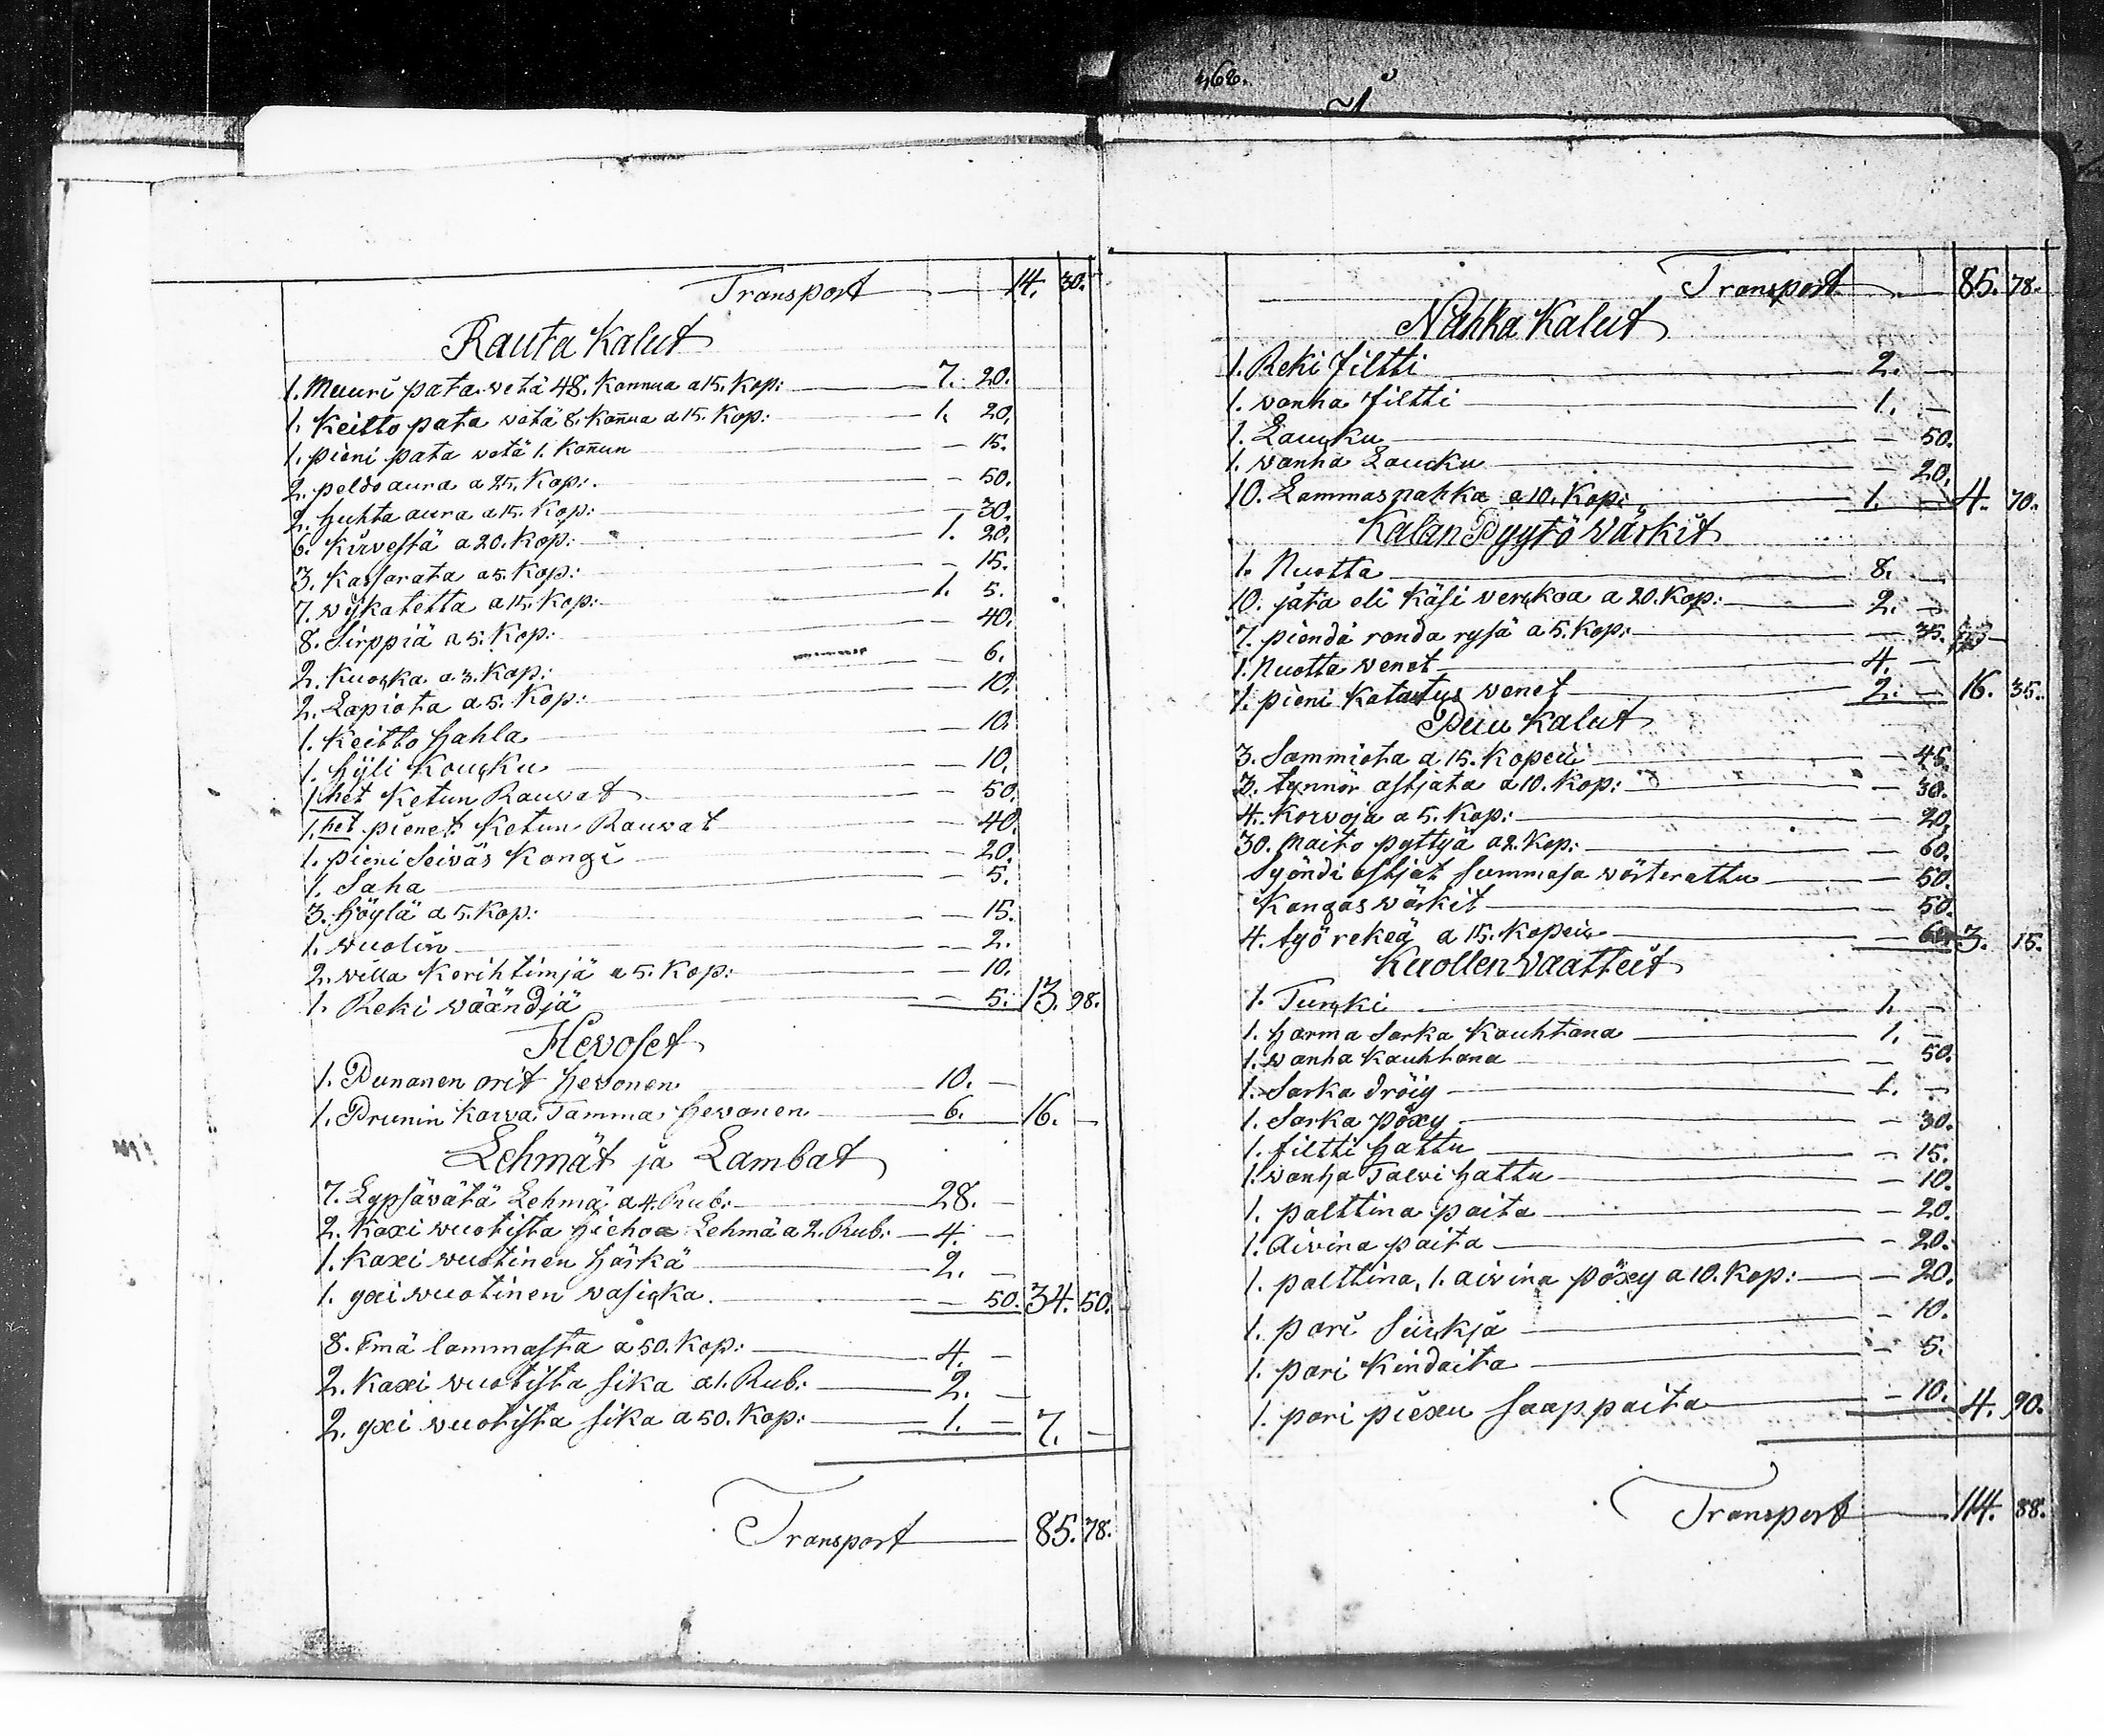 Transport — 14. 30.
Rauta Kalut
1. Muuri pata wetä 48. Kannua a 15. Kop: — 7. 20.
1. Keitto pata wetä 8. Kañua a 15. Kop: — 1. 20.
1. pieni pata wetä 1. Kañun — 15.
2. peldo aura a 25. Kop: — 50.
2. huhta aura a 15. Kop: — 30.
6. Kirvestä a 20. Kop: — 1. 20.
3. Kassarata a 5. Kop: — 15.
7. wijkatetta a 15. Kop: — 1. 5.
8. Sirppiä a 5. Kop: — 40.
2. Kuoska a 3. Kop: — 6.
2. Lapiota a 5. Kop: — 10.
1. Keitto hahla — 10.
1. hijli Koucku — 10.
1.het Ketun Rauwat — 50.
1.het pienet Ketun Rauwat — 40.
1. pieni Seiväs Kangi — 20.
1. Saha — 5.
3. höylä a 5. Kop: — 15.
1. wuolin — 2.
2. willa Kerihtimjä a 5. Kop: — 10.
1. Reki wäändjä — 5. 13. 98.
Hevoset
1. Punanen orit hewonen — 10. —
1. Prunin Karwa Tamma hewonen — 6. 16. —
Lehmät ja Lambat
7. Lypsäwätä Lehmä a 4. Rub: — 28. —
2. Kaxi wuotista hiehoa Lehmä a 2. Rub: — 4. —
1. Kaxi wuotinen härkä — 2. —
1. yxi wuotinen wasicka — 50. 34. 50.
8. Emä lammasta a 50. Kop: — 4. —
2. Kaxi wuotista sika a 1. Rub: — 2. —
2. yxi wuotista sika a 50. Kop: — 1. — 7. —
Transport — 85. 78.
Transport — 85. 78.
Nahka Kalut
1. Reki filtti — 2. —
1. wanha filtti — 1. —
1. Laucku — 50.
1. wanha Laucku — 20.
10. Lammasnahka a 10. Kop: — 1. — 4. 70.
Kalan Pyytö Wärkit
1. Nuotta — 8. —
10. jata eli Käsi werckoa a 20. Kop: — 2. —
7. piendä randa rysä a 5. Kop: — 35.
1. Nuotta wenet — 4. —
1. pieni Katastus wenet — 2. — 16. 35.
Puu Kalut
3. Sammiota a 15. Kopeik — 45.
3. tynnör astjata a 10. Kop: — 30.
4. Korvoja a 5. Kop: — 20.
30. Maito pyttyä a 2. Kop: — 60.
Syöndi astjat summasa wärterattu — 50.
Kangas wärkit — 50.
4. työ rekeä a 15. Kopeik — 60. 3. 15.
Kuollen Vaatteit
1. Turcki — 1. —
1. harma Sarka Kauhtana — 1. —
1. wanha Kauhtana — 50.
1. Sarka dröig — 1. —
1. Sarka pöxy — 30.
1. filtti hattu — 15.
1. wanha Talvi hattu — 10.
1. palttina paita — 20.
1. Aivina paita — 20.
1. palttina, 1. aivina pöxy a 10. Kop: — 20.
1. pari suckja — 10.
1. pari Kindaita — 5.
1. pari piexu saappaita — 10. 4. 90.
Transport — 114. 88.